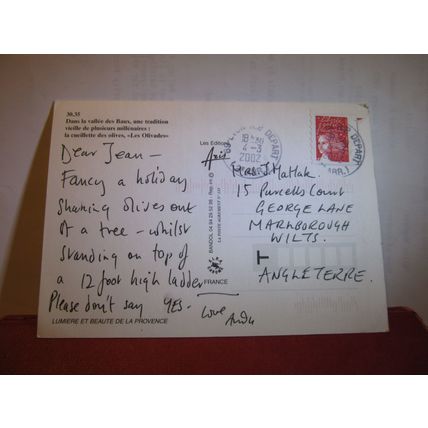 30.35
Dans la vallée des Baux, une tradition
vieille de plusieurs millénaires :
la cueillette des olives, «Les Olivades»
Dear Jean -
Fancy a holiday
shaking olives out
of a tree - whilst
standing on top of
a 12 foot high ladder
Please don't say YES -
Love
LUMIERE ET BEAUTE DE LA PROVENCE
Les Editions
FRANCE
DEPART
2-3
2002
Mrs J. Matlak
15 Purcells Court
GEORGE LANE
MARLBOROUGH
WILTS.
ANGLETERRE.